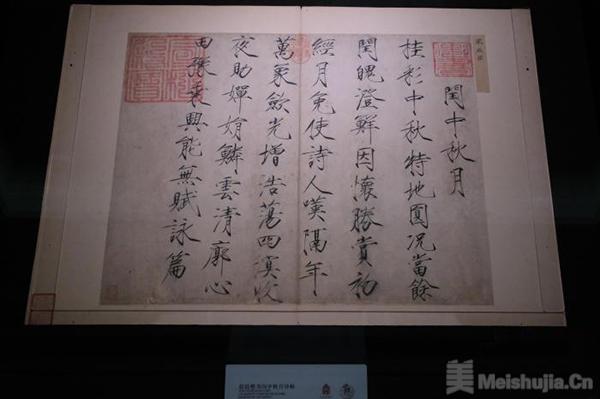 閏中秋月
桂彩中秋特地圓况當餘
閏魄澄鮮因懷勝賞初
經月免使詩人嘆隔年
萬象斂光增浩蕩四溟收
夜助嬋娟鱗雲清廓心
田乘興能無賦詠篇
美 Meishujia.Cn